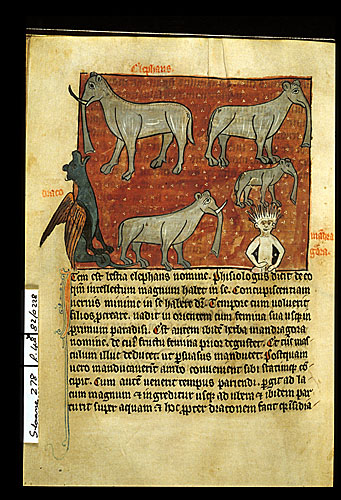 Elephans
draco
mandra
gora.
Item est bestia elephans nomine. Phisiologus dicit de eo
qm intellectum magnum habet in se. Concupiscentiam
uerus minime in se habere dr. Tempore cum voluerit
filios pcreare. uadit in orientem cum femina sua usq; in
primum paradisi. Est autem ibide herba mandragora
nomine. de cui' fructu femina prior degustet. Et sic mas
culum illuc deducet ut psuasus manducet. Postquam
uero manducauerint ambo conueniunt sibi statimq; co
cipit. Cum aute uenerit tempus pariendi. pgit ad la
cum magnum & ingreditur usq; ad ubera & ibidem par
turit super aquam & hoc ppter draconem facit q insidia
Sloane 278 P. 48v 82/0228